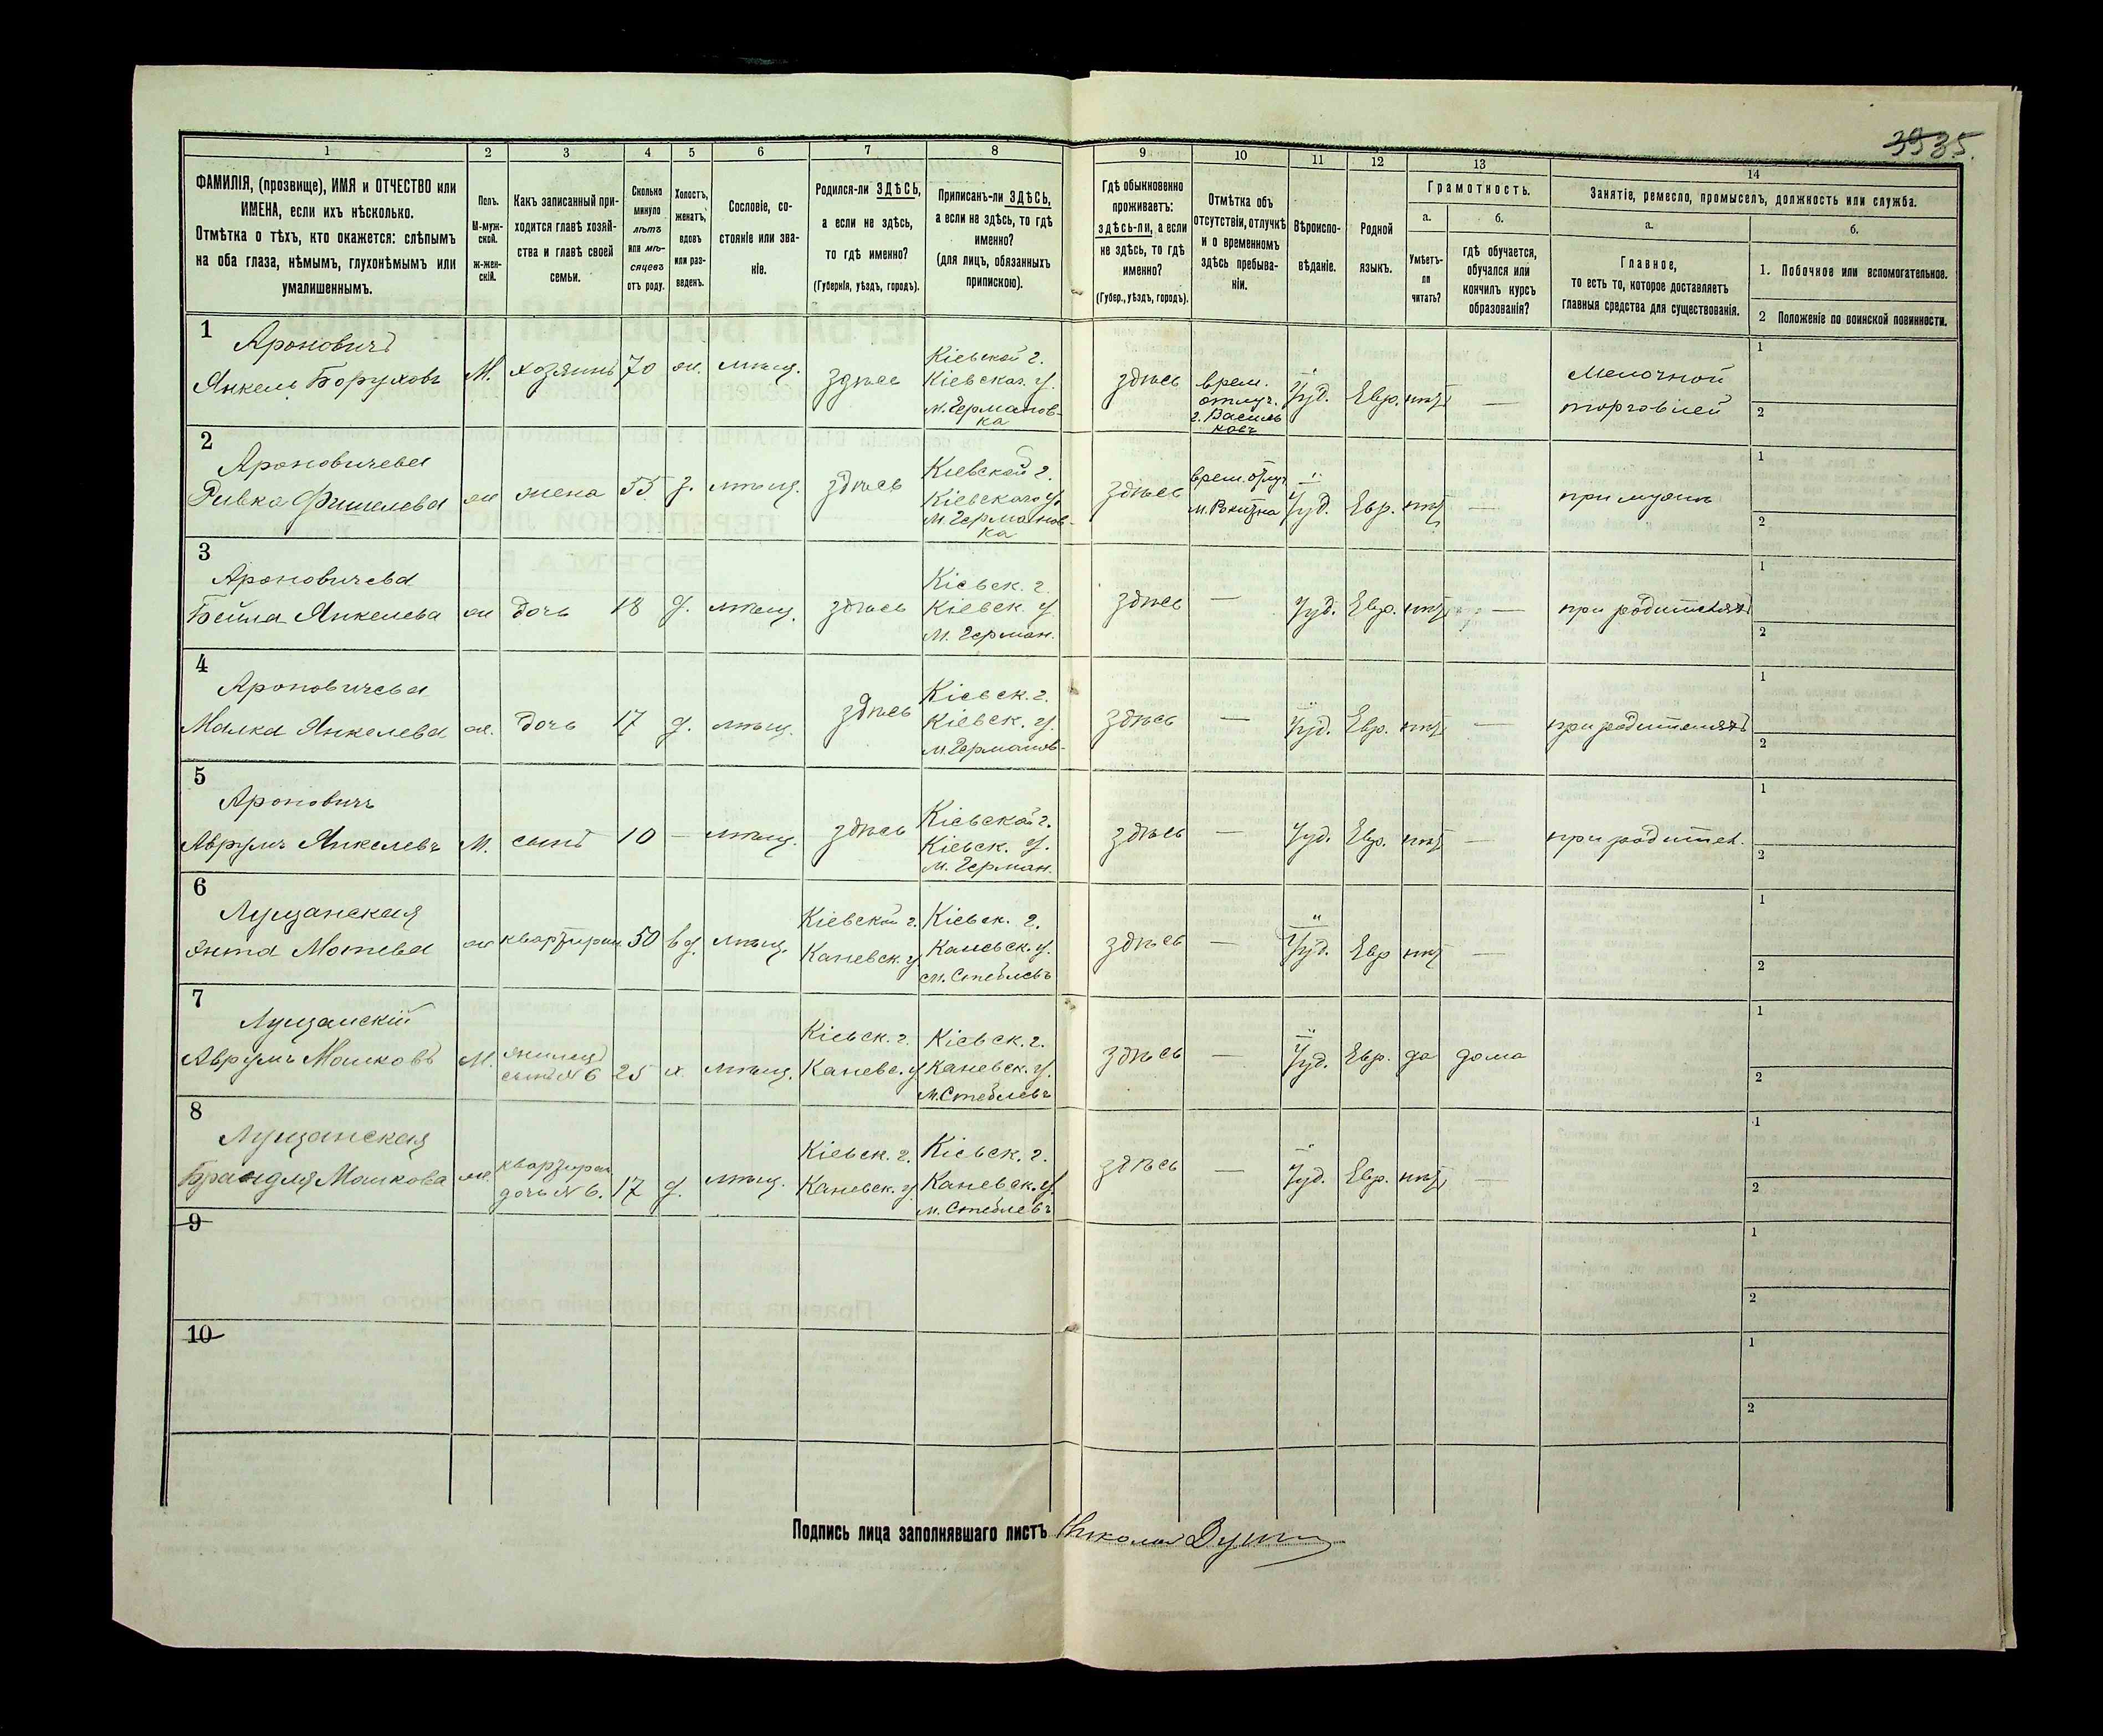 39 35.
1 2 3 4 5 6 7 8 9 10 11 12 13 14
ФАМИЛІЯ, (прозвище), ИМЯ и ОТЧЕСТВО или
ИМЕНА, если ихъ нѣсколько.
Отмѣтка о тѣхъ, кто окажется: слѣпымъ
на оба глаза, нѣмымъ, глухонѣмымъ или
умалишеннымъ.
Полъ.
М-муж-
ской.
ж-жен-
скій.
Какъ записанный при-
ходится главѣ хозяй-
ства и главѣ своей
семьи.
Сколько
минуло
лѣтъ
или мѣ-
сяцевъ
отъ роду.
Холостъ,
женатъ,
вдовъ
или раз-
веденъ.
Сословіе, со-
стояніе или зва-
ніе.
Родился-ли ЗДѢСЬ,
а если не здѣсь,
то гдѣ именно?
(Губернія, уѣздъ, городъ).
Приписанъ-ли ЗДѢСЬ,
а если не здѣсь, то гдѣ
именно?
(для лицъ, обязанныхъ
припискою).
Гдѣ обыкновенно
проживаетъ:
здѣсь-ли, а если
не здѣсь, то гдѣ
именно?
(Губер., уѣздъ, городъ).
Отмѣтка объ
отсутствіи, отлучкѣ
и о временномъ
здѣсь пребыва-
ніи.
Вѣроиспо-
вѣданіе.
Родной
языкъ.
Грамотность.
а.
Умѣетъ-
ли
читать?
б.
гдѣ обучается,
обучался или
кончилъ курсъ
образованія?
Занятіе, ремесло, промыселъ, должность или служба.
а.
Главное,
то есть то, которое доставляетъ
главныя средства для существованія.
б.
1. Побочное или вспомогательное.
2 Положеніе по воинской повинности.
1
Ароновичъ
Янкель Боруховъ
М.
хозяинъ
70
ж.
мѣщ.
здѣсь
Кіевской г.
Кіевскаг. у.
м. Германов-
ка
здѣсь
врем.
отлуч.
г. Василь
ковъ
Іуд.
Евр.
нѣтъ
—
Мелочной
торговлей
1
2
2
Ароновичева
Ривка Фишелева
ж
жена
55
з.
мѣщ.
здѣсь
Кіевской г.
Кіевскаго у.
м. Германов-
ка
здѣсь
врем. отлуч
Іуд.
Евр.
нѣтъ
—
при мужѣ
1
2
3
Ароновичева
Бейла Янкелева
ж
дочь
18
д.
мѣщ.
здѣсь
Кіевск. г.
Кіевск. у.
м. Герман.
здѣсь
—
Іуд.
Евр.
нѣтъ
—
при родителяхъ
1
2
4
Ароновичева
Малка Янкелева
ж.
дочь
17
д.
мѣщ.
здѣсь
Кіевск. г.
Кіевск. у.
м. Германов-
здѣсь
—
Іуд.
Евр.
нѣтъ
—
при родителяхъ
1
2
5
Ароновичъ
Аврумъ Янкелевъ
М.
сынъ
10
—
мѣщ.
здѣсь
Кіевской г.
Кіевск. у.
м. Герман.
здѣсь
—
Іуд.
Евр.
нѣтъ
—
при родител.
1
2
6
Лущанская
Энта Мотева
ж
квартиран.
50
вд.
мѣщ.
Кіевской г.
Каневск. у
Кіевск. г.
Каневск. у.
м. Стеблевъ
здѣсь
—
Іуд.
Евр
нѣтъ
—
1
2
7
Лущанскій
Аврумъ Машковъ
М.
жилец
сынъ N 6
25
х.
мѣщ.
Кіевск. г.
Каневс. у
Кіевск. г.
Каневск. у.
м. Стеблевъ
здѣсь
—
Іуд.
Евр.
да
дома
1
2
8
Лущанская
Брандля Машкова
ж.
квартиран
дочь N 6.
17
д.
мѣщ.
Кіевск. г.
Каневск. у.
Кіевск. г.
Каневск. у.
м. Стеблевъ
здѣсь
—
Іуд.
Евр.
нѣтъ
—
1
2
9
1
2
10
1
2
Подпись лица заполнявшаго листъ Николай